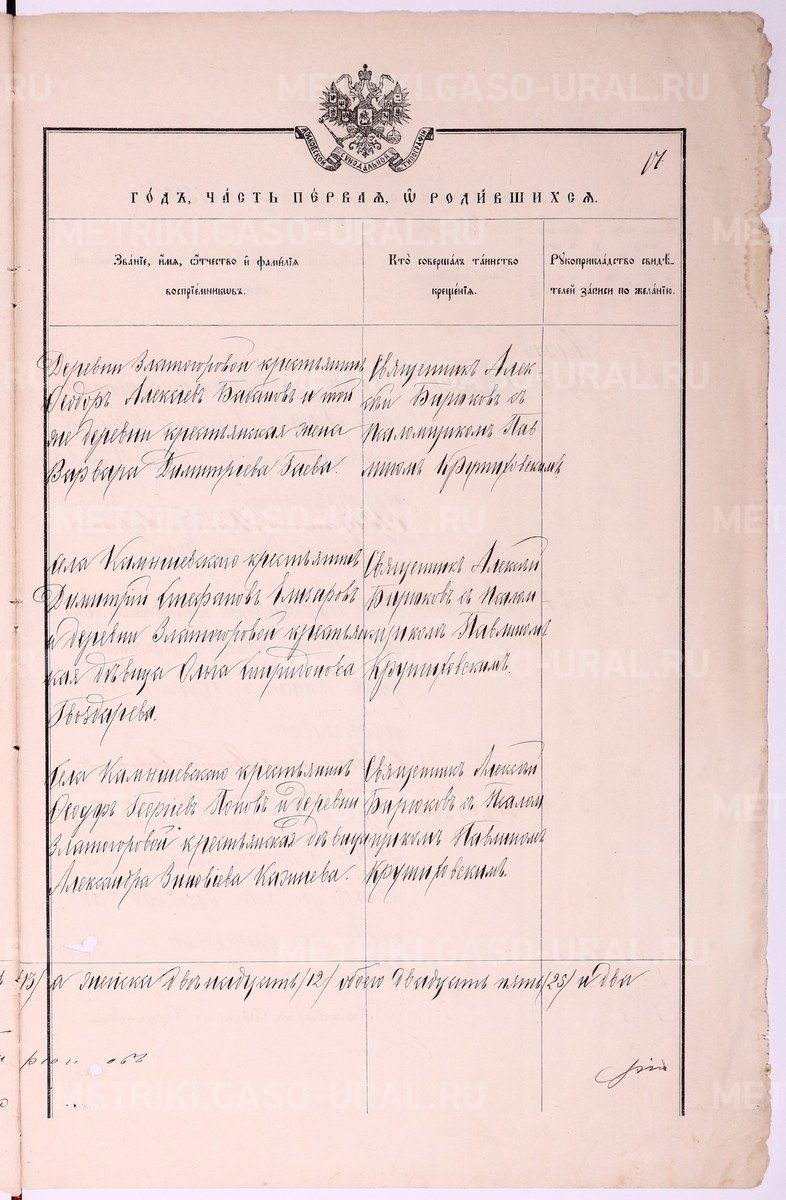 МОСКОВСКОЙ СѴНОДАЛЬНОЙ ТИПОГРАФІИ
17
ГО́ДЪ, ЧА́СТЬ ПЕ́РВАЯ, Ѽ РОДИ́ВШИХСЯ.
Зва́нїе, и҆́мя, ѻ҆́тчество и҆ фами́лїя воспрїе́мникѡвъ.
Кто̀ соверша́лъ та́инство креще́нїя.
Рꙋкоприкла́дство свидѣ́телей за́писи по жела́нїю.
Деревни Златогоровой крестьянинъ
Ѳеодоръ Алексіевъ Бабановъ и той
же деревни крестьянская жена
Варвара Димитріева Гаева.
Священникъ Алек-
сѣй Бирюковъ съ
Псаломщикомъ Пав
линомъ Крутиховскимъ
села Камышевскаго крестьянинъ
Димитрій Стефановъ Елизаровъ
и деревни Златогоровой крестьян
ская дѣвица Ольга Спиридонова
Гвоздарева.
Священникъ Алексѣй
Бирюковъ съ Псалом
щикомъ Павлиномъ
Крутиховскимъ.
Села Камышевскаго крестьянинъ
Ѳеодоръ Георгіевъ Поповъ и деревни
Златогоровой крестьянская дѣвица
Александра Зиновіева Казанева.
Священникъ Алексѣй
Бирюковъ съ Псалом
щикомъ Павлиномъ
Крутиховскимъ.
/13/ а женска двѣнадцать /12/ обоего двадцать пять /25/ и два
METRIKI.GASO-URAL.RU